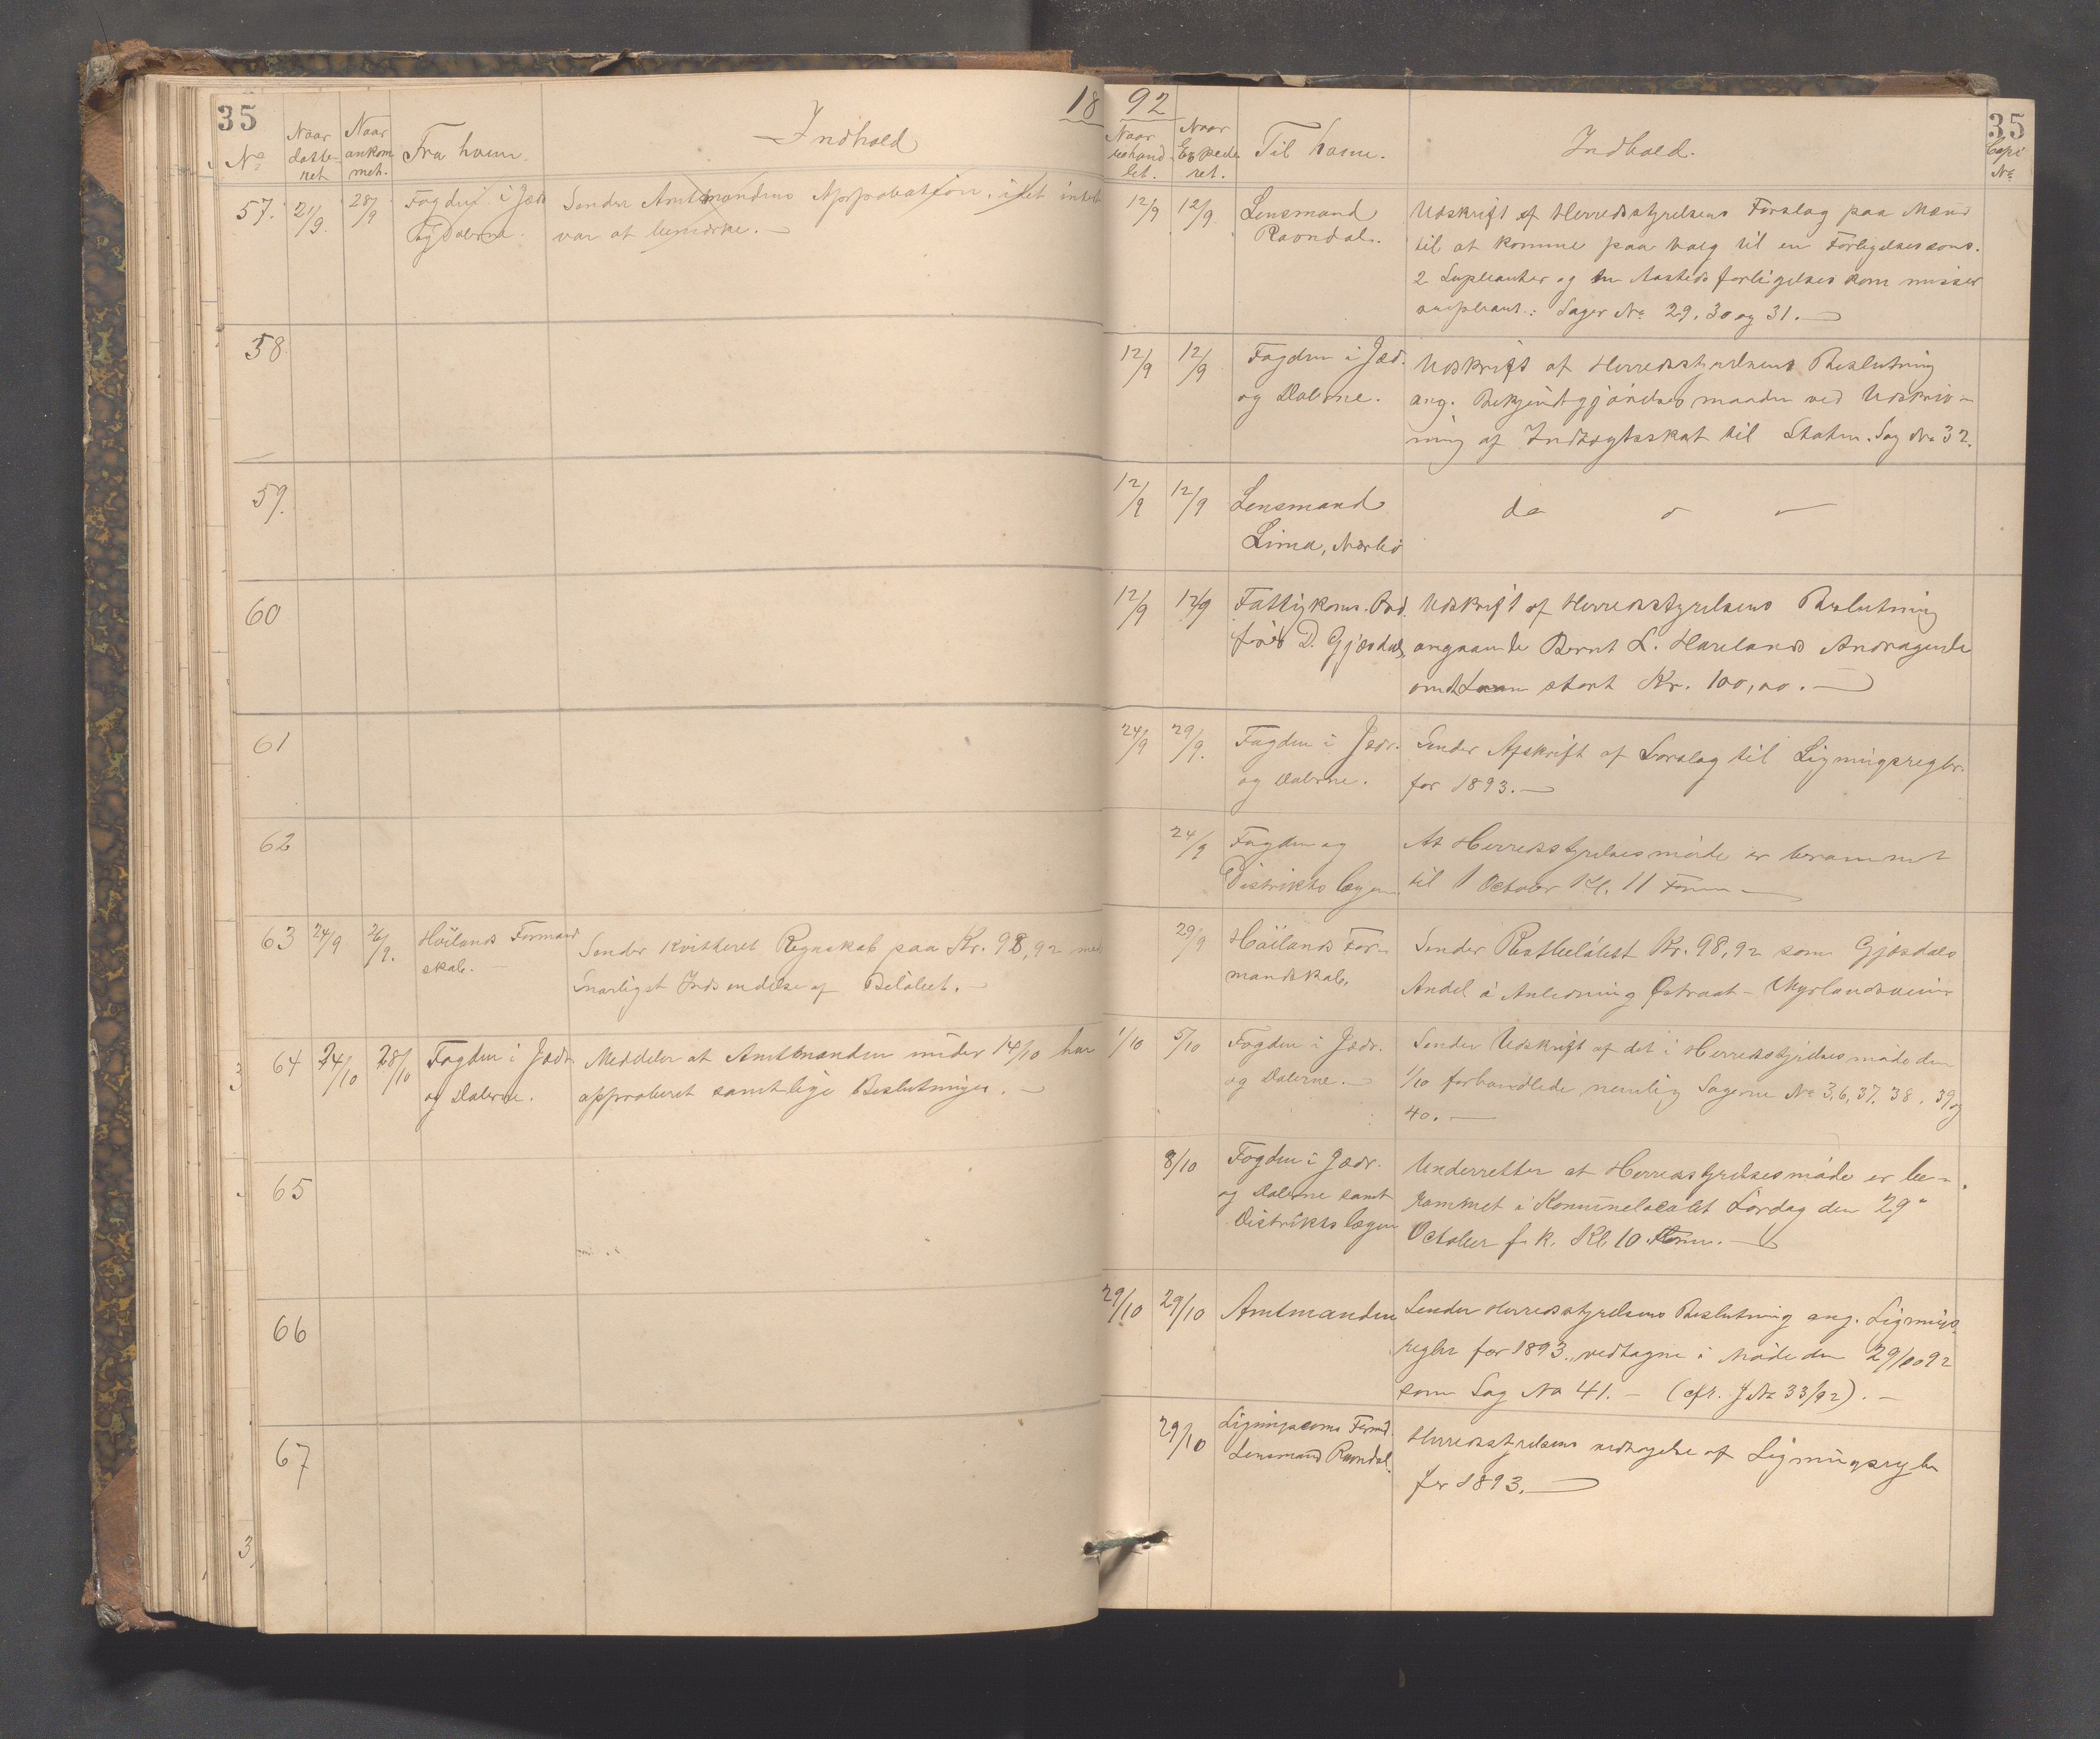 35
18
No
Naar datte- net
Naar ankom met.
Fra hvem.
Indhold
57.
21/9.
28/9
Fogden i Jæd
og Dalerne.
Sender Amtmandens Approbation, idet intet
var at bemærke. —
58
59.
60
61
62
63
24/9
26/9.
Höilands Formand
skab. —
Sender kvitteret Regnskab paa Kr. 98,92 med
snarligst Indsendelse af Belöbet. —
64
24/10
28/10
Fogden i Jædr
og Dalerne.
Meddeler at Amtmanden under 14/10 har
approberet samtlige Beslutninger. —
65
66
67
3
92
35
Naar behand let.
Naar Expede ret.
Til hvem.
Indhold.
Copi
No
12/9
12/9
Lensmand
Ravndal.
Udskrift af Herredsstyrelsens Forslag paa Mænd
til at komme paa valg til en Forligelsescoms.
2 Supleanter og en Aastedsforligelseskommissær
suepleant: Sager No 29. 30 og 31. —
12/9
12/9
Fogden i Jæd.
og Dalerne.
Udskrift af Herredsstyrelsens Beslutning
ang. Bekjendtgjörelsesmaaden ved Udskriv-
ning af Indtægtsskat til Staten. Sag No 32.
12/9
12/9
Lensmand
Lima, Nærbö
do
12/9
12/9
Fattigkoms. Ord
förer D. Gjesdal,
Udskrift af Herredsstyrelsens Beslutning
angaaende Bernt L. Harelands Andragende
om Laan stort Kr. 100,00. —
24/9
29/9.
Fogden i Jædr.
og Dalerne.
Sender Afskrift af Forslag til Ligningsregler.
for 1893. —
24/9
Fogden og
Distriktslægen
At Herredsstyrelsesmöde er berammet
til 1 October Kl. 11 Form —
29/9
Höilands For-
mandskab.
Sender Restbelöbet Kr. 98,92 som Gjesdals
Andel i Anledning Østraat-
1/10
5/10
Fogden i Jædr.
og Dalerne. —
Sender Udskrift af det i Herredsstyrelsesmöde den
1/10 forhandlede nemlig Sagerne No 36, 37. 38. 39 og
40. —
8/10
Fogden i Jædr.
og Dalerne samt
Distriktslægen
Underretter at Herredsstyrelsesmöde er be-
rammet i Komunelocalet Lördag den 29
October f. k. Kl. 10 Form. —
29/10
29/10
Amtmanden
Sender Herredsstyrelsens Beslutning ang. Lignings
regler for 1893, vedtagne i Möde den 29/10 92
som Sag No 41. — (cfr. J No 33/92). —
29/10
Ligningscoms Formd.
Lensmand Ravndal.
Herredsstyrelsens vedtagelse af Ligningsregler
for 1893. —